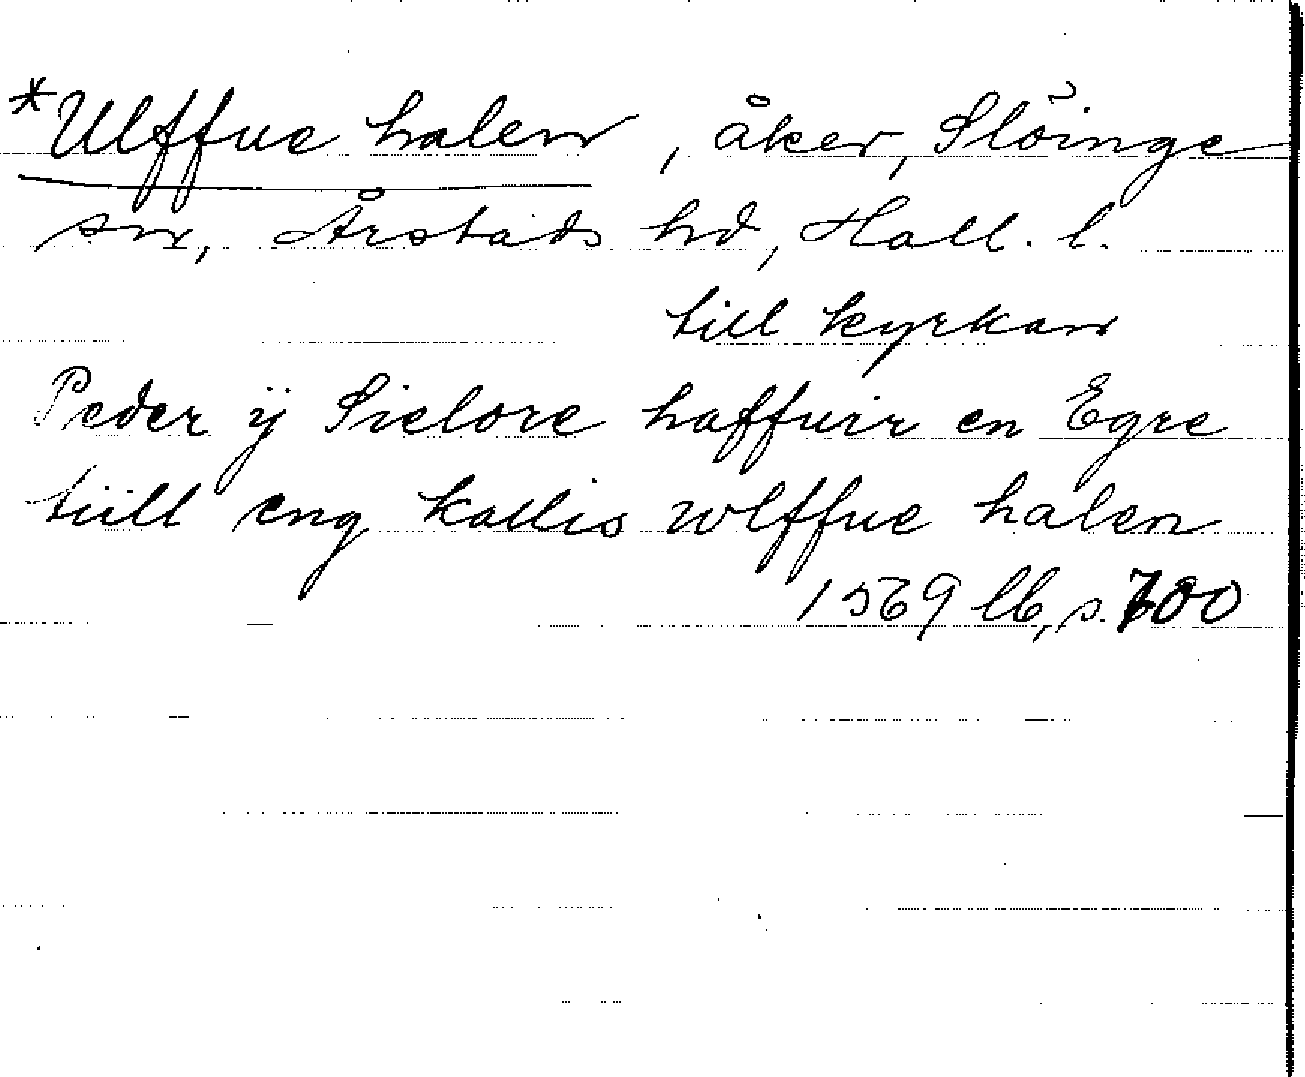 *Ulffue halen, åker, Slöinge
sn, Årstads hd, Hall. l.
till kyrkan
Peder ÿ Sielore haffuir en Egre
tiill eng kallis wlffue halen
1569 lb, s. 700